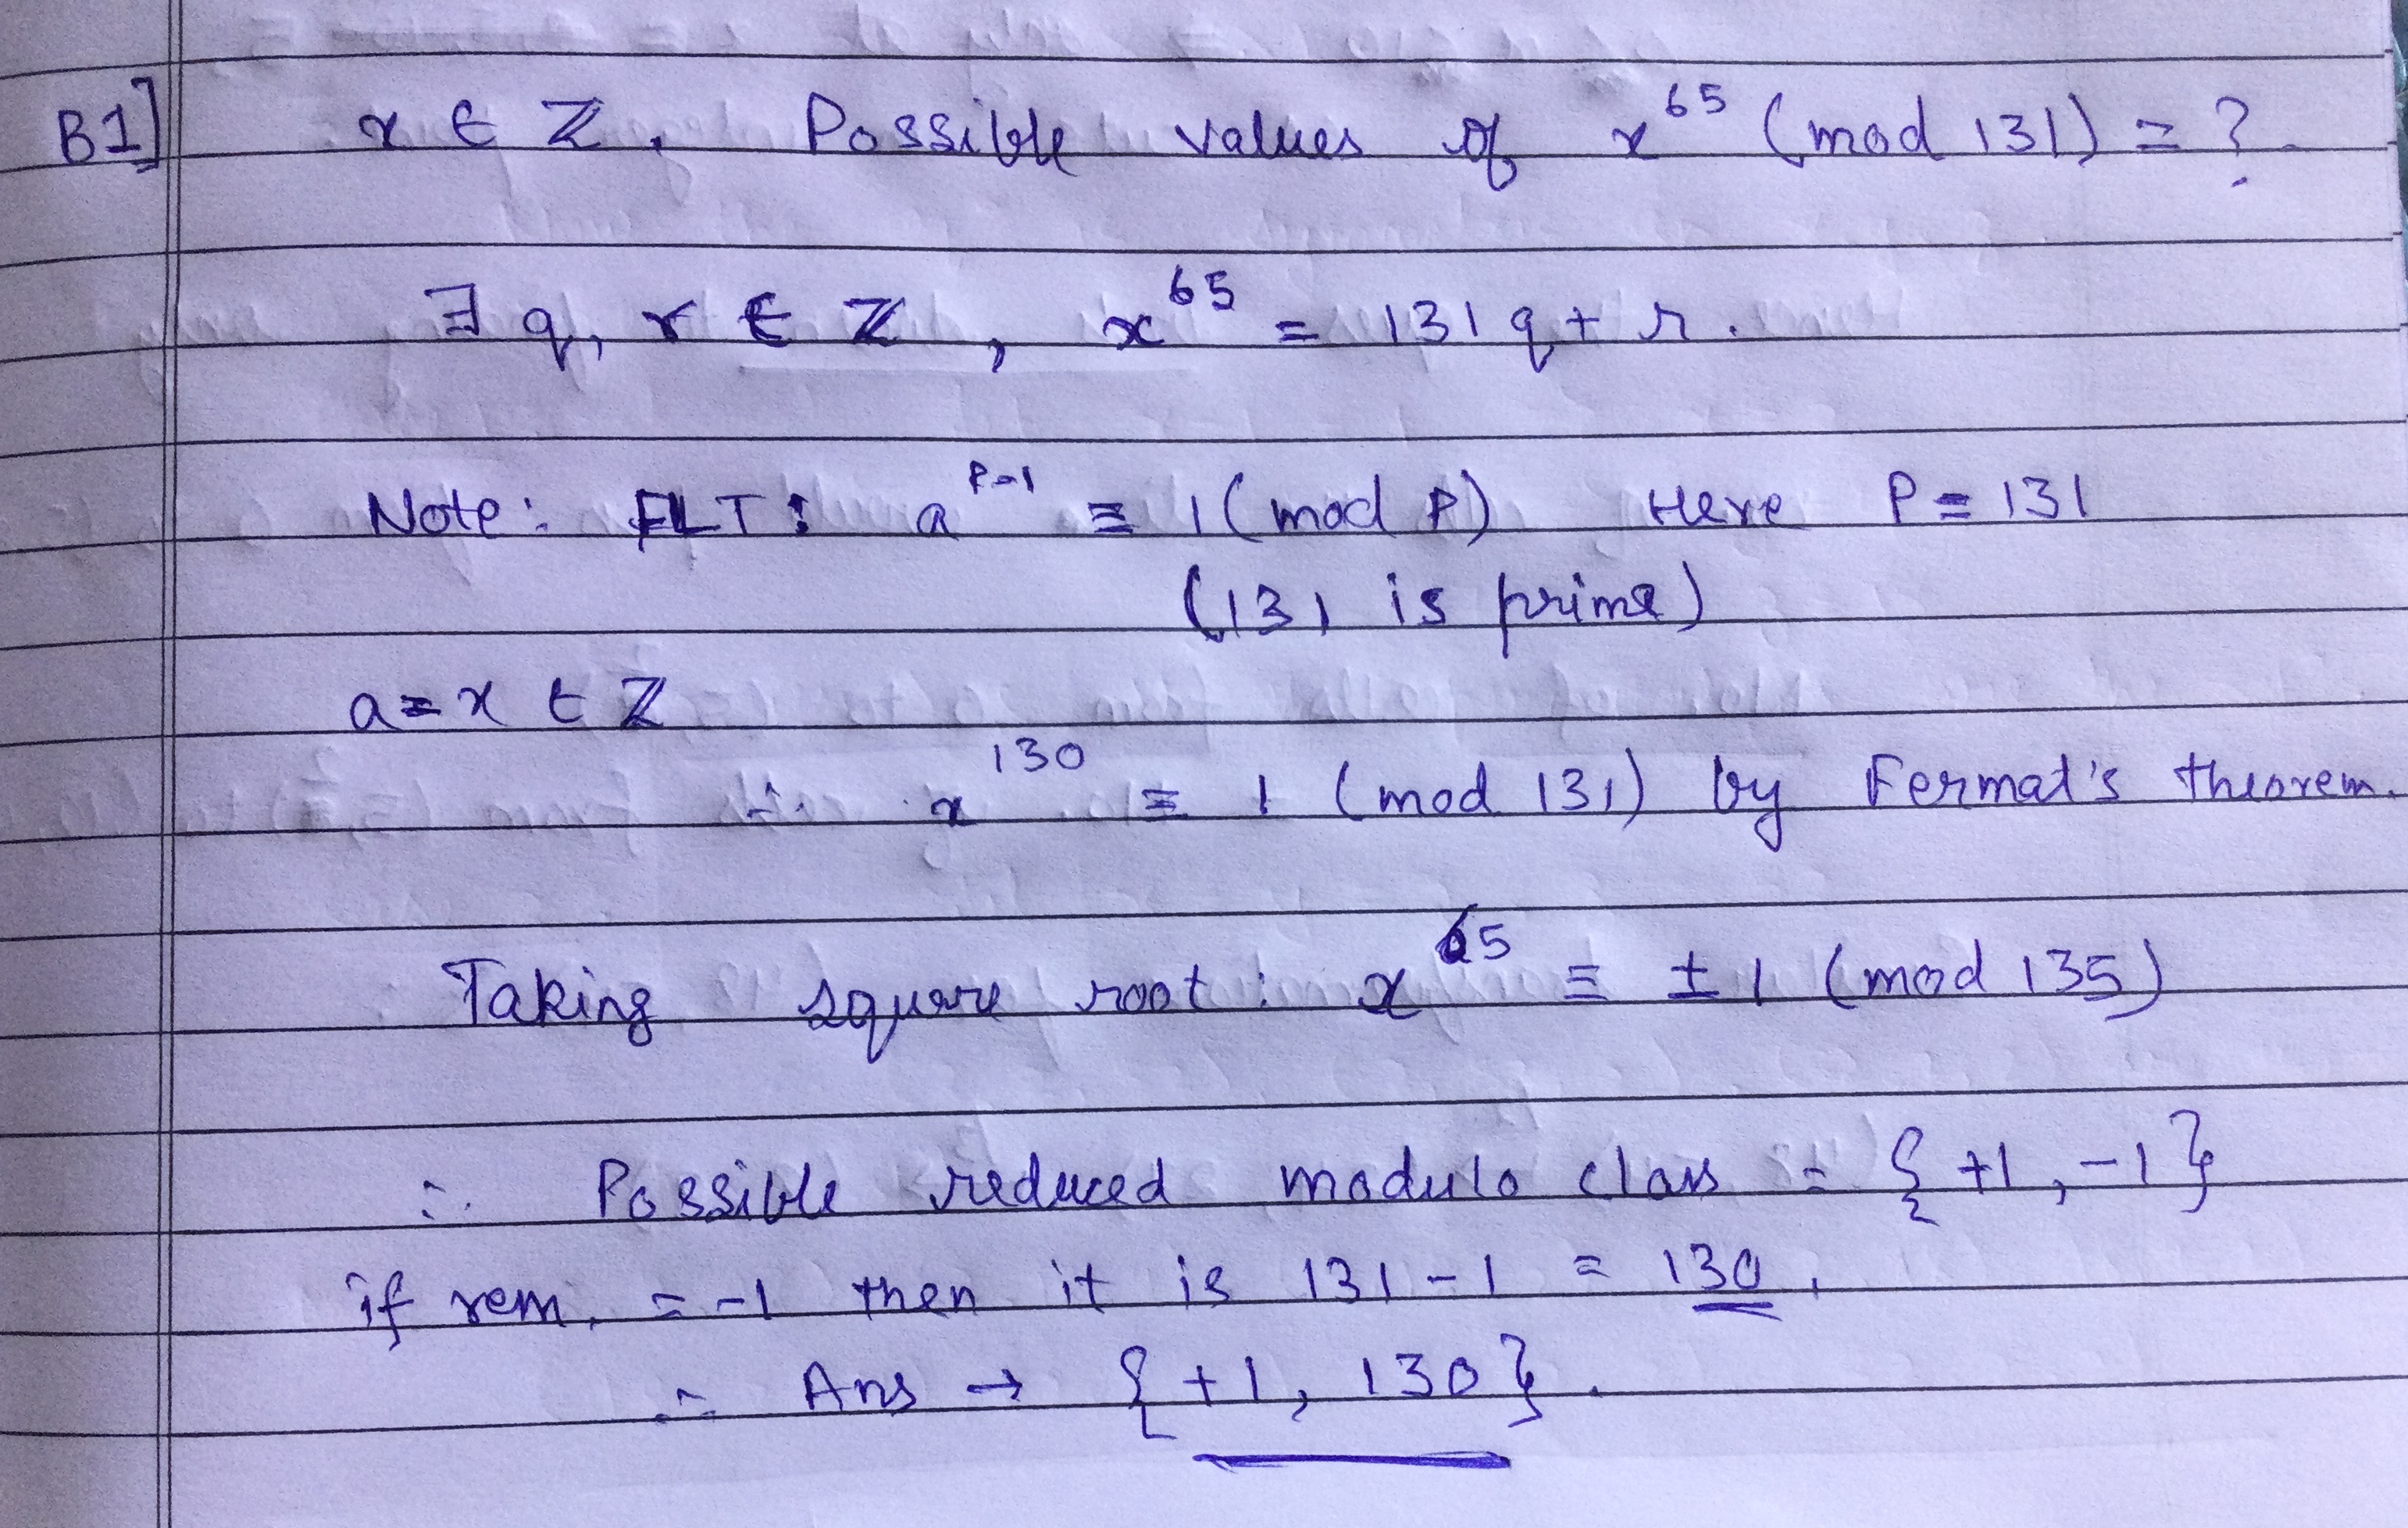 B1] x ∈ ℤ. Possible values of x^65 (mod 131) = ?.
∃ q, r ∈ ℤ, x^65 = 131q + r.
Note: FLT: a^(P-1) ≡ 1 (mod P) Here P = 131
(131 is prime)
a = x ∈ ℤ
∴ x^130 ≡ 1 (mod 131) by Fermat's theorem.
Taking square root: x^65 ≡ ±1 (mod 135)
∴ Possible reduced modulo class = {+1, -1}
if rem. = -1 then it is 131 - 1 = 130.
∴ Ans → {+1, 130}.